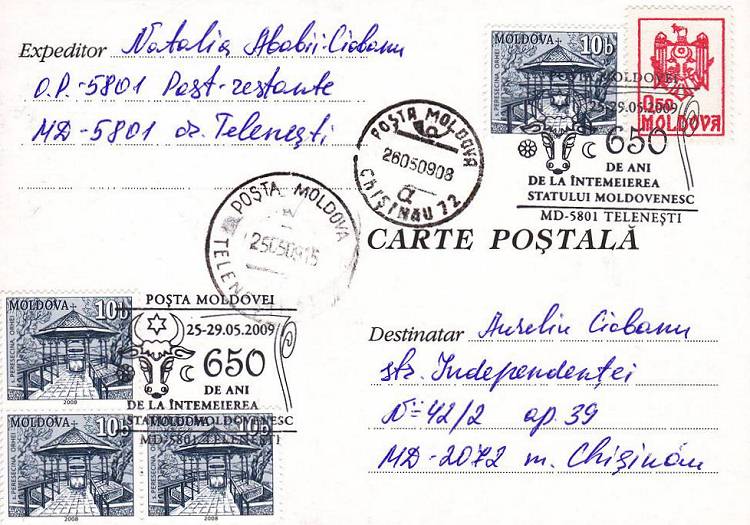 Expeditor Natalia Ababii-Ciobanu
O.P.-5801 Post-restante
MD-5801 or. Telenești
MOLDOVA+ 10b
PERESECINA. ORHEI
0,50
MOLDOVA
POȘTA MOLDOVEI
25-29.05.2009
650
DE ANI
DE LA ÎNTEMEIEREA
STATULUI MOLDOVENESC
MD-5801 TELENEȘTI
POȘTA MOLDOVA
26050908
a
CHIȘINĂU 72
POȘTA MOLDOVA
CARTE POȘTALĂ
MOLDOVA+ 10b
PERESECINA. ORHEI
2008
POȘTA MOLDOVEI
25-29.05.2009
650
DE ANI
DE LA ÎNTEMEIEREA
STATULUI MOLDOVENESC
MD-5801 TELENEȘTI
MOLDOVA+ 10b
PERESECINA. ORHEI
2008
MOLDOVA 10b
PERESECINA. ORHEI
2008
Destinatar Aureliu Ciobanu
str. Independenței
N=42/2 ap. 39
MD-2072 m. Chișinău